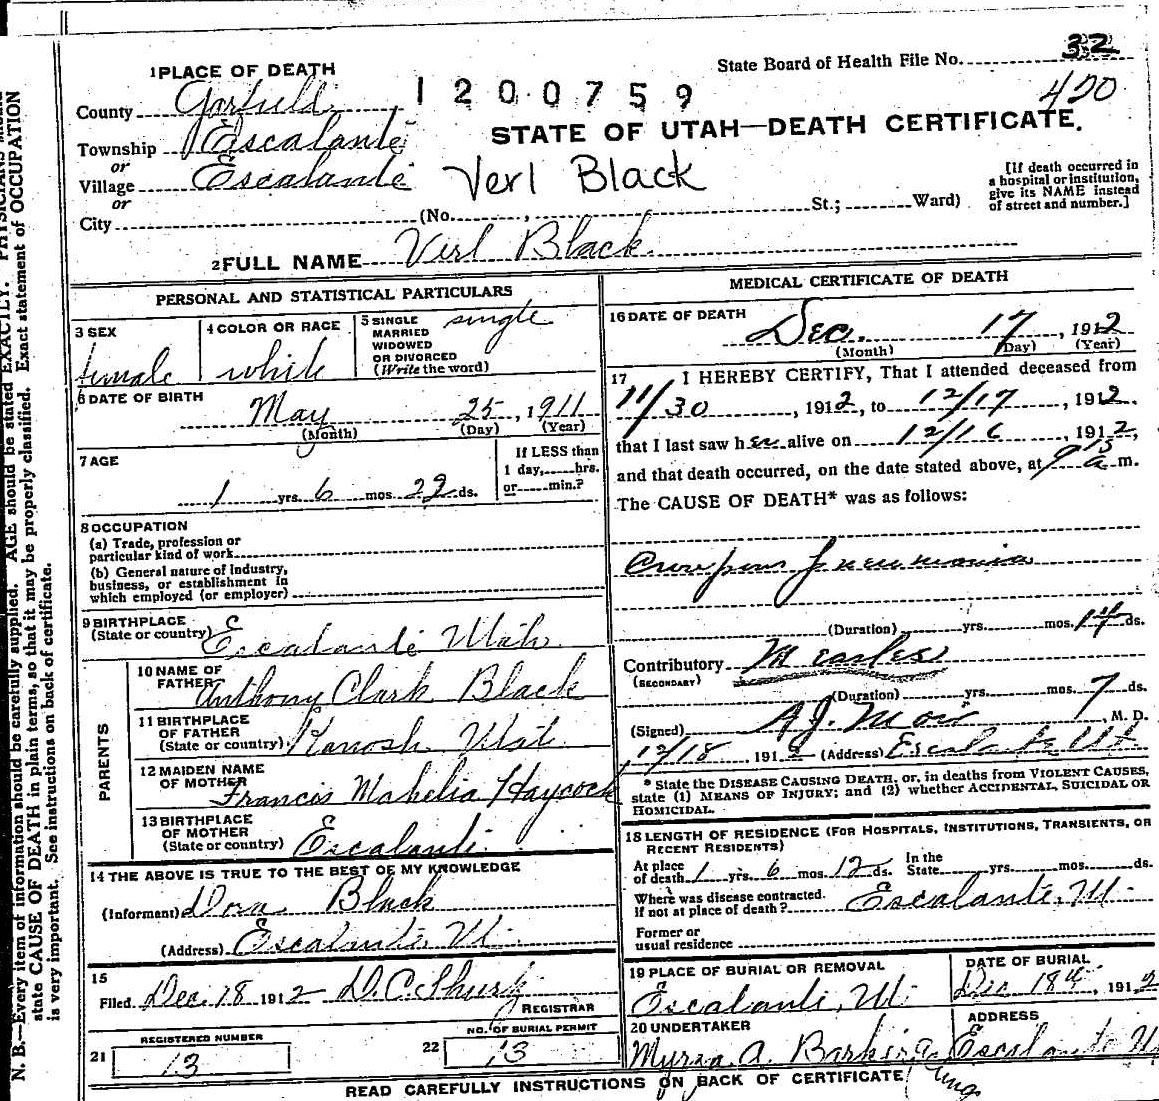 State Board of Health File No. 32
1 PLACE OF DEATH
420
County Garfield
1200759
STATE OF UTAH—DEATH CERTIFICATE.
Township Escalante
or
Village Escalante
Verl Black
[If death occurred in a hospital or institution, give its NAME instead of street and number.]
or
City (No. , St.; Ward)
2 FULL NAME Verl Black
PERSONAL AND STATISTICAL PARTICULARS
3 SEX female
4 COLOR OR RACE white
5 SINGLE MARRIED WIDOWED OR DIVORCED (Write the word) single
6 DATE OF BIRTH May 25, 1911
(Month) (Day) (Year)
7 AGE
If LESS than 1 day, hrs. or min.?
1 yrs. 6 mos. 22 ds.
8 OCCUPATION
(a) Trade, profession or particular kind of work
(b) General nature of industry, business, or establishment in which employed (or employer)
9 BIRTHPLACE (State or country) Escalante Utah
PARENTS
10 NAME OF FATHER Anthony Clark Black
11 BIRTHPLACE OF FATHER (State or country) Kanosh Utah
12 MAIDEN NAME OF MOTHER Francis Mahelia Haycock
13 BIRTHPLACE OF MOTHER (State or country) Escalante
14 THE ABOVE IS TRUE TO THE BEST OF MY KNOWLEDGE
(Informant) Dora Black
(Address) Escalante, Ut.
15
Filed Dec. 18 1912 D.C. Shurtz
REGISTRAR
21 REGISTERED NUMBER 13
22 NO. OF BURIAL PERMIT 13
MEDICAL CERTIFICATE OF DEATH
16 DATE OF DEATH Dec. 17, 1912
(Month) (Day) (Year)
17 I HEREBY CERTIFY, That I attended deceased from
11/30, 1912, to 12/17, 1912.
that I last saw her alive on 12/16, 1912,
and that death occurred, on the date stated above, at 9 15 a m.
The CAUSE OF DEATH* was as follows:
Croupous Pneumonia
(Duration) yrs. mos. 17 ds.
Contributory (SECONDARY) Measles
(Duration) yrs. mos. 7 ds.
(Signed) , M. D.
12/18, 1912 (Address) Escalante Ut
* State the DISEASE CAUSING DEATH, or, in deaths from VIOLENT CAUSES, state (1) MEANS OF INJURY; and (2) whether ACCIDENTAL, SUICIDAL OR HOMICIDAL.
18 LENGTH OF RESIDENCE (FOR HOSPITALS, INSTITUTIONS, TRANSIENTS, OR RECENT RESIDENTS)
At place of death 1 yrs. 6 mos. 12 ds. In the State yrs. mos. ds.
Where was disease contracted. If not at place of death? Escalante, Ut.
Former or usual residence
19 PLACE OF BURIAL OR REMOVAL Escalante, Ut.
DATE OF BURIAL Dec 18th, 1912
20 UNDERTAKER Myrza A. Barker
ADDRESS Escalante Ut
READ CAREFULLY INSTRUCTIONS ON BACK OF CERTIFICATE
N. B.—Every item of information should be carefully supplied. AGE should be stated EXACTLY. PHYSICIANS should
state CAUSE OF DEATH in plain terms, so that it may be properly classified. Exact statement of OCCUPATION
is very important. See instructions on back of certificate.